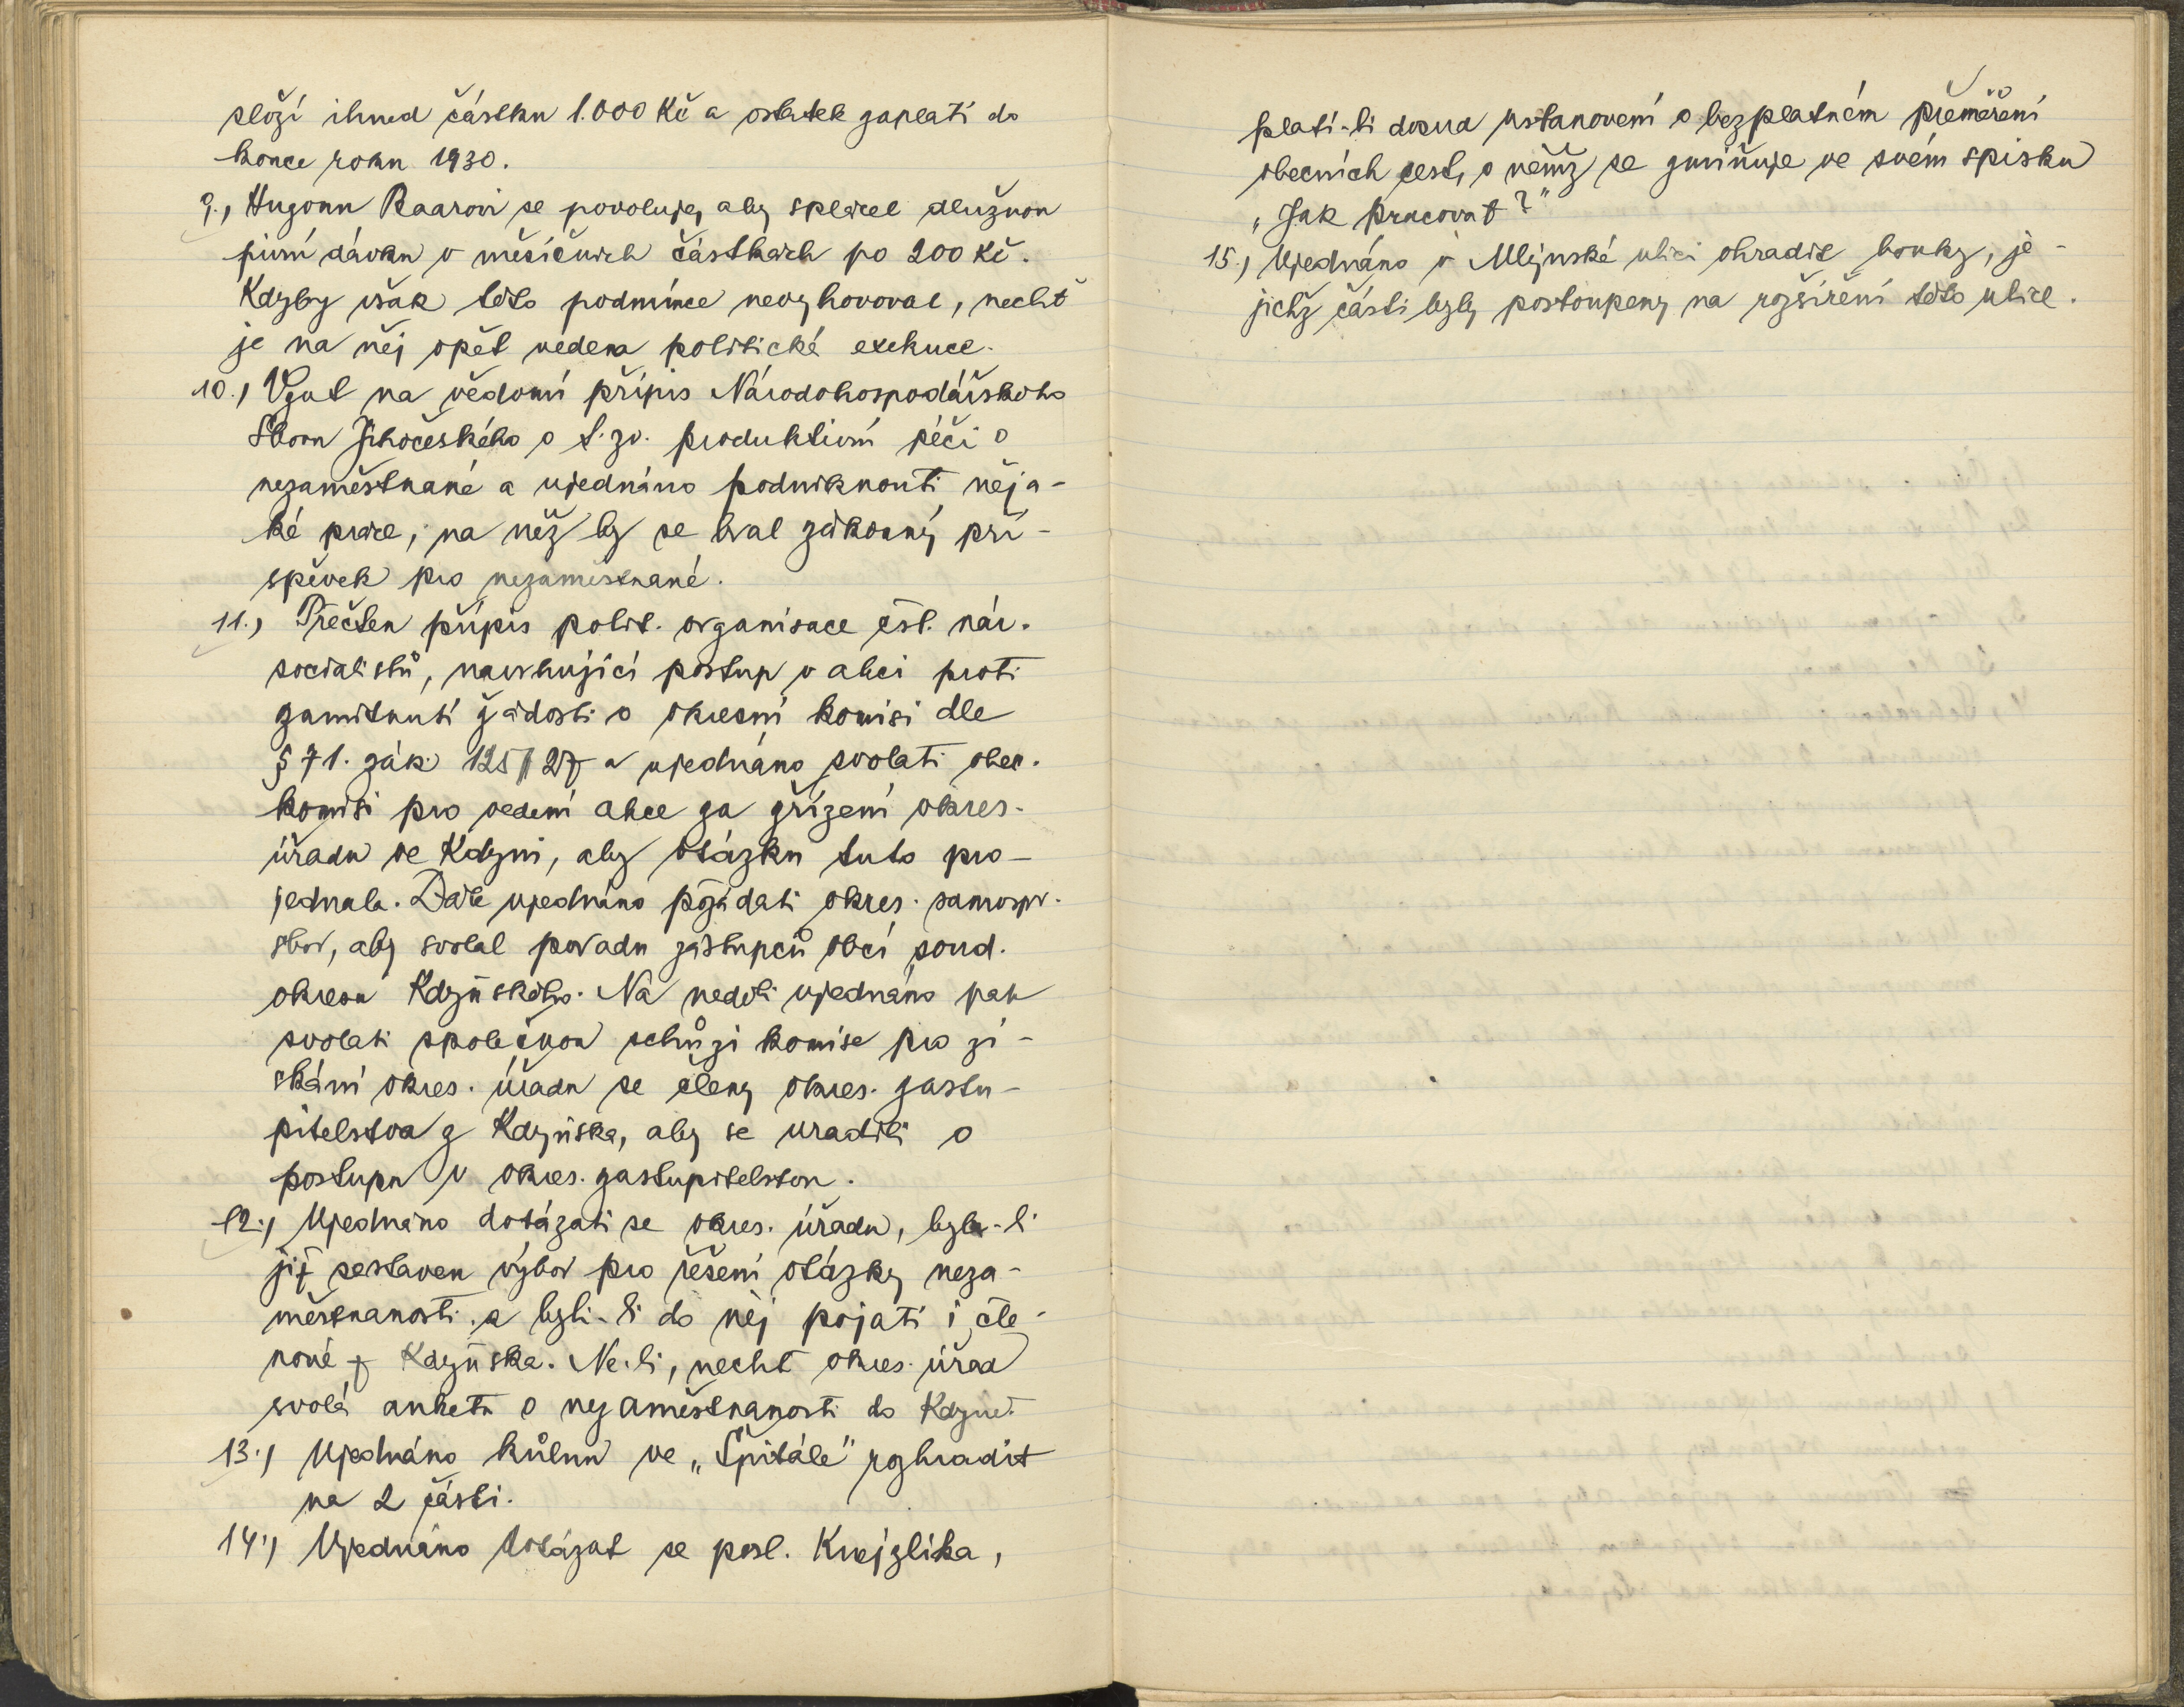 složí ihned částku 1.000 Kč a ostatek zaplatí do
konce roku 1930.
9., Hugonu Baarovi se povoluje, aby splácel dlužnou
pivní dávku v měsíčních částkách po 200 Kč.
Kdyby však této podmínce nevyhovoval, nechť
je na něj opět vedena politická exekuce.
10.) Vzat na vědomí přípis Národohospodářského
Sboru Jihočeského o t. zv. produktivní péči o
nezaměstnané a ujednáno podniknouti něja-
ké práce, na něž by se bral zákonný pří-
spěvek pro nezaměstnané.
11.) Přečten přípis polit. organisace čsl. nár.
socialistů, navrhující postup v akci proti
zamítnutí žádosti o okresní komisi dle
§ 71. zák. 125/27 a ujednáno svolati obec.
komisi pro vedení akce za zřízení okres.
úřadu ve Kdyni, aby otázku tuto pro-
jednala. Dále ujednáno požádati okres. samospr.
sbor, aby svolal poradu zástupců obcí soud.
okresu Kdyňského. Na neděli ujednáno pak
svolati společnou schůzi komise pro zí-
skání okres. úřadu se členy okres. zastu-
pitelstva z Kdyňska, aby se uradili o
postupu v okres. zastupitelstvu.
12.) Ujednáno dotázati se okres. úřadu, byl-li
již sestaven výbor pro řešení otázky neza-
městnanosti a byli-li do něj pojati i čle-
nové z Kdyňska. Ne-li, nechť okres. úřad
svolá anketu o nezaměstnanosti do Kdyně.
13.) Ujednáno kůlnu ve „Špitále" rozhradit
na 2 části.
14.) Ujednáno dotázat se posl. Knejzlíka,
platí-li dosud ustanovení o bezplatném přeměření
obecních cest, o němž se zmiňuje ve svém spisku
„Jak pracovat?"
15.) Ujednáno v Mlýnské ulici ohradit louky, je-
jichž části byly postoupeny na rozšíření této ulice.